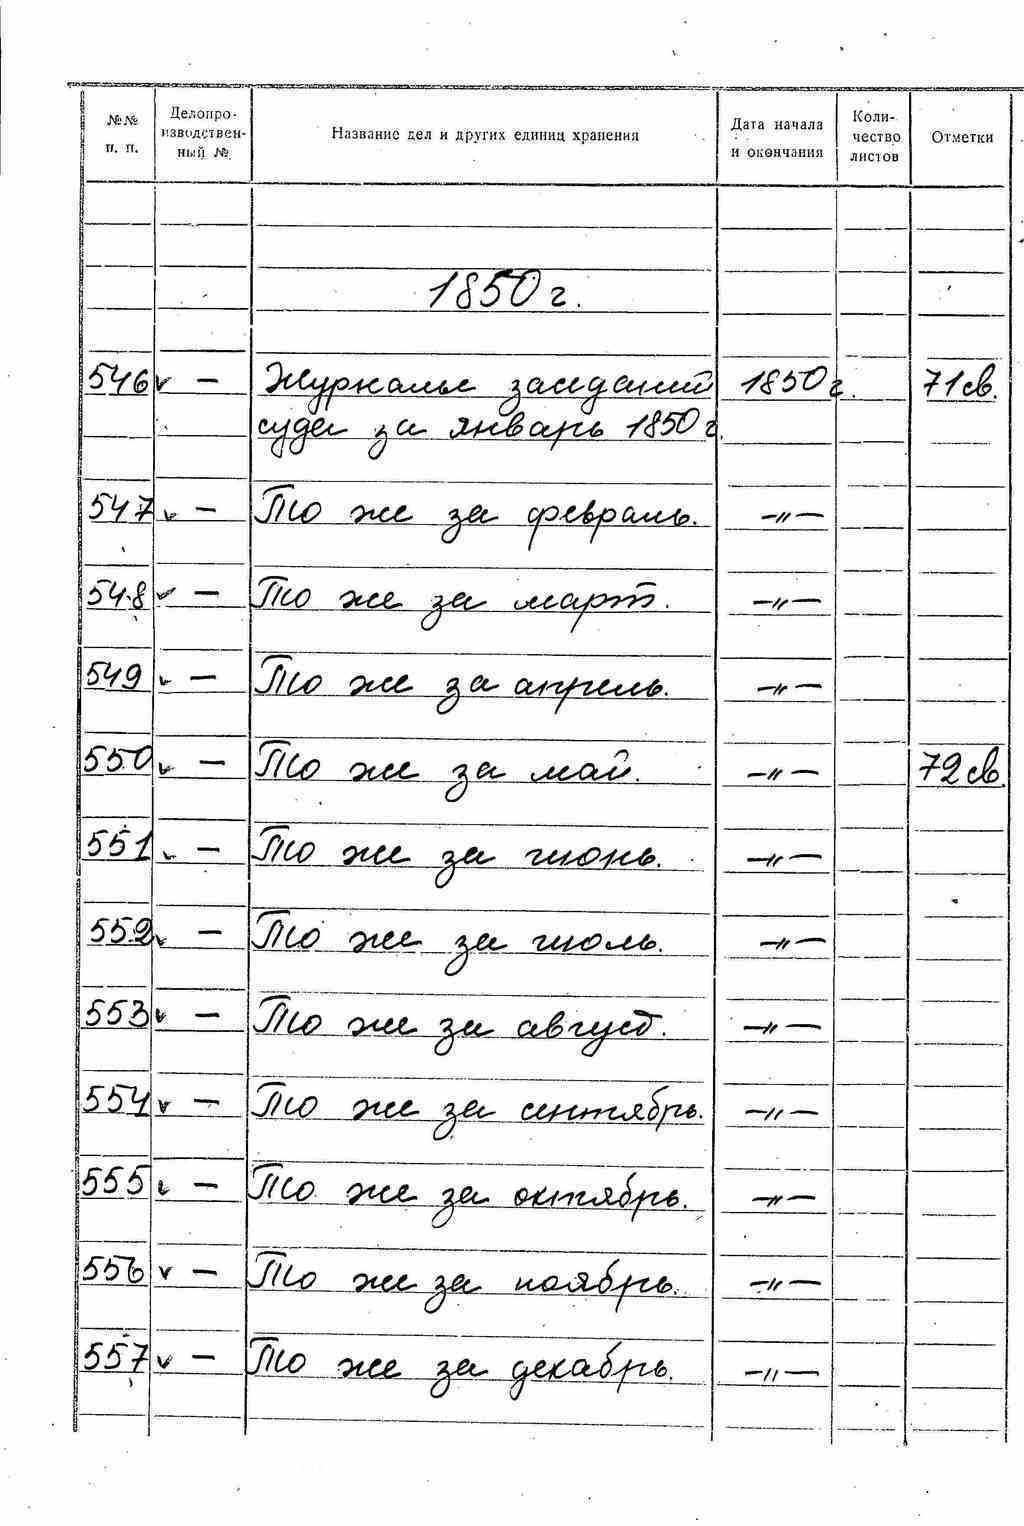 №№ п. п. Делопроизводственный № Название дел и других единиц хранения Дата начала и окончания Количество листов Отметки
1850 г.
546 v — Журналы заседаний 1850 г. 71 св.
суда за январь 1850 г.
547 v — То же за февраль. —"—
548 v — То же за март. —"—
549 v — То же за апрель. —"—
550 v — То же за май. —"— 72 св.
551 v — То же за июнь. —"—
552 v — То же за июль. —"—
553 v — То же за август. —"—
554 v — То же за сентябрь. —"—
555 v — То же за октябрь. —"—
556 v — То же за ноябрь. —"—
557 v — То же за декабрь. —"—